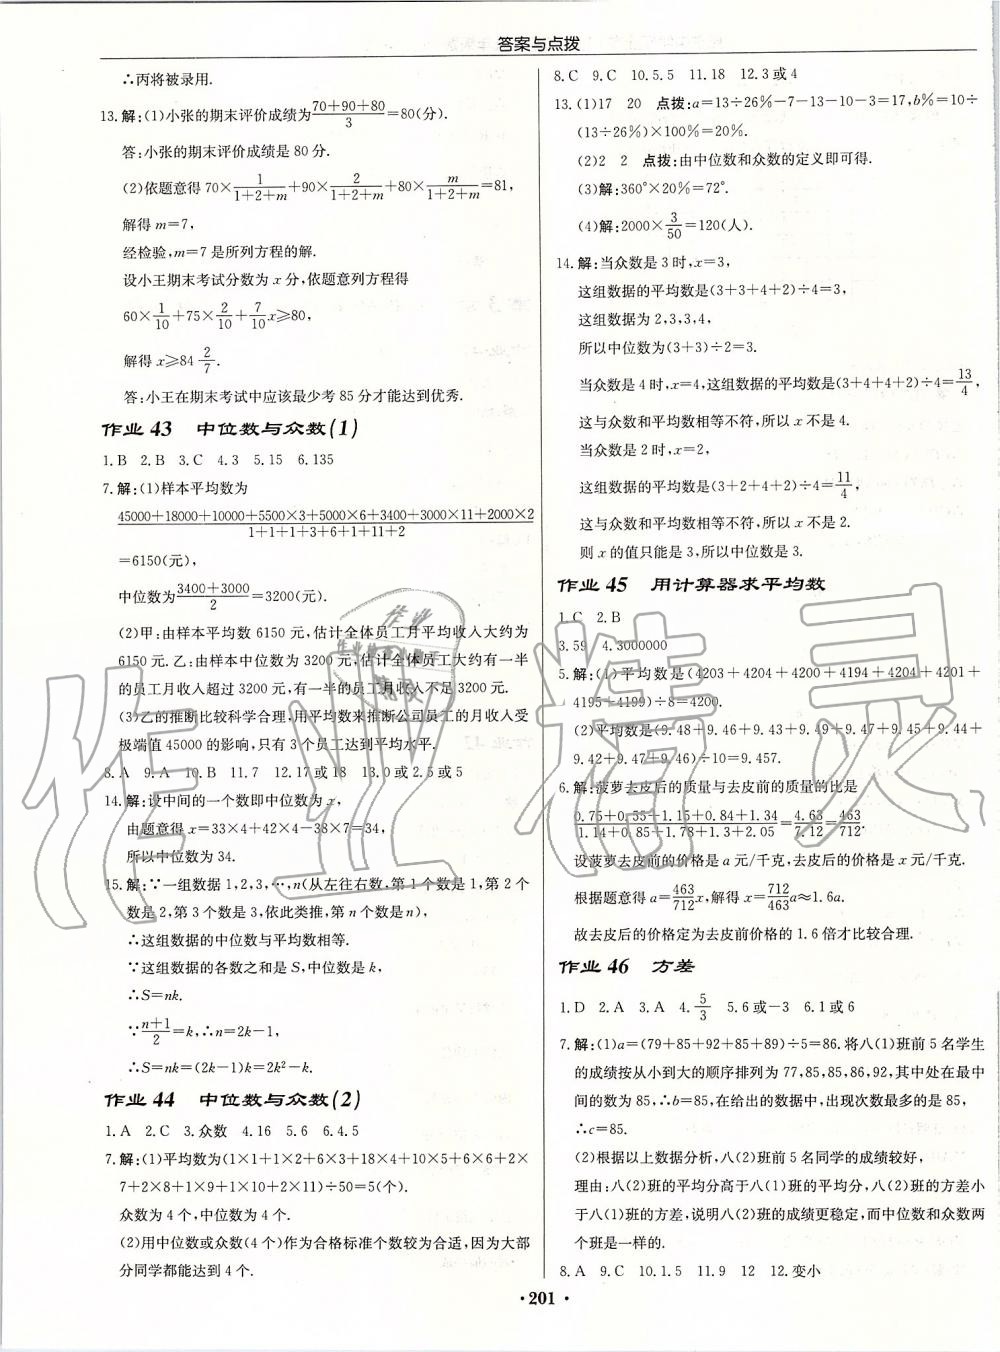 答案与点拨
∴丙将被录用.
13.解:(1)小张的期末评价成绩为(70+90+80)/3=80(分).
答:小张的期末评价成绩是80分.
(2)依题意得70×1/(1+2+m)+90×2/(1+2+m)+80×m/(1+2+m)=81,
解得m=7,
经检验,m=7是所列方程的解.
设小王期末考试分数为x分,依题意列方程得
60×1/10+75×2/10+7/10x≥80,
解得x≥84 2/7.
答:小王在期末考试中应该最少考85分才能达到优秀.
作业43 中位数与众数(1)
1.B 2.B 3.C 4.3 5.15 6.135
7.解:(1)样本平均数为
(45000+18000+10000+5500×3+5000×6+3400+3000×11+2000×2)/(1+1+1+3+6+1+11+2)
=6150(元),
中位数为(3400+3000)/2=3200(元).
(2)甲:由样本平均数6150元,估计全体员工月平均收入大约为
6150元.乙:由样本中位数为3200元,估计全体员工大约有一半
的员工月收入超过3200元,有一半的员工月收入不足3200元.
(3)乙的推断比较科学合理,用平均数来推断公司员工的月收入受
极端值45000的影响,只有3个员工达到平均水平.
8.A 9.A 10.B 11.7 12.17或18 13.0或2.5或5
14.解:设中间的一个数即中位数为x,
由题意得x=33×4+42×4-38×7=34,
所以中位数为34.
15.解:∵一组数据1,2,3,…,n(从左往右数,第1个数是1,第2个
数是2,第3个数是3,依此类推,第n个数是n),
∴这组数据的中位数与平均数相等.
∵这组数据的各数之和是S,中位数是k,
∴S=nk.
∵(n+1)/2=k,∴n=2k-1,
∴S=nk=(2k-1)k=2k²-k.
作业44 中位数与众数(2)
1.A 2.C 3.众数 4.16 5.6 6.4.5
7.解:(1)平均数为(1×1+1×2+6×3+18×4+10×5+6×6+2×
7+2×8+1×9+1×10+2×11)÷50=5(个).
众数为4个,中位数为4个.
(2)用中位数或众数(4个)作为合格标准个数较为合适,因为大部
分同学都能达到4个.
8.C 9.C 10.5.5 11.18 12.3或4
13.(1)17 20 点拨:a=13÷26%-7-13-10-3=17,b%=10÷
(13÷26%)×100%=20%.
(2)2 2 点拨:由中位数和众数的定义即可得.
(3)解:360°×20%=72°.
(4)解:2000×3/50=120(人).
14.解:当众数是3时,x=3,
这组数据的平均数是(3+3+4+2)÷4=3,
这组数据为2,3,3,4,
所以中位数为(3+3)÷2=3.
当众数是4时,x=4,这组数据的平均数是(3+4+4+2)÷4=13/4,
这与众数和平均数相等不符,所以x不是4.
当众数是2时,x=2,
这组数据的平均数是(3+2+4+2)÷4=11/4,
这与众数和平均数相等不符,所以x不是2.
则x的值只能是3,所以中位数是3.
作业45 用计算器求平均数
1.C 2.B
3.59 4.3000000
5.解:(1)平均数是(4203+4204+4200+4194+4204+4201+
4195+4199)÷8=4200.
(2)平均数是(9.48+9.46+9.43+9.49+9.47+9.45+9.44+
9.42+9.47+9.46)÷10=9.457.
6.解:菠萝去皮后的质量与去皮前的质量的比是
(0.75+0.55+1.15+0.84+1.34)/(1.14+0.85+1.78+1.3+2.05)=4.63/7.12=463/712.
设菠萝去皮前的价格是a元/千克,去皮后的价格是x元/千克.
根据题意得a=463/712x,解得x=712/463a≈1.6a.
故去皮后的价格定为去皮前价格的1.6倍才比较合理.
作业46 方差
1.D 2.A 3.A 4.5/3 5.6或-3 6.1或6
7.解:(1)a=(79+85+92+85+89)÷5=86.将八(1)班前5名学生
的成绩按从小到大的顺序排列为77,85,85,86,92,其中处在最中
间的数为85,∴b=85,在给出的数据中,出现次数最多的是85,
∴c=85.
(2)根据以上数据分析,八(2)班前5名同学的成绩较好,
理由:八(2)班的平均分高于八(1)班的平均分,八(2)班的方差小
于八(1)班的方差,说明八(2)班的成绩更稳定,而中位数和众数两
个班是一样的.
8.A 9.C 10.1.5 11.9 12 12.变小
·201·
作业精灵